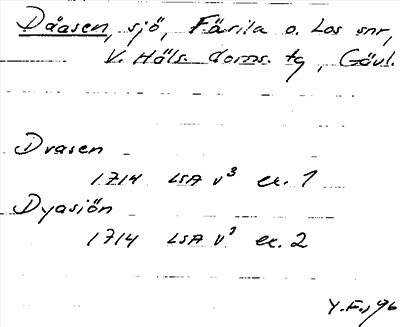 Dåasen, sjö, Färila o. Los snr,
V. Häls. doms. tg, Gävl.
Drasen
1714 LSA V³ ex. 1
Dyasiön
1714 LSA V³ ex. 2
Y.F., 96